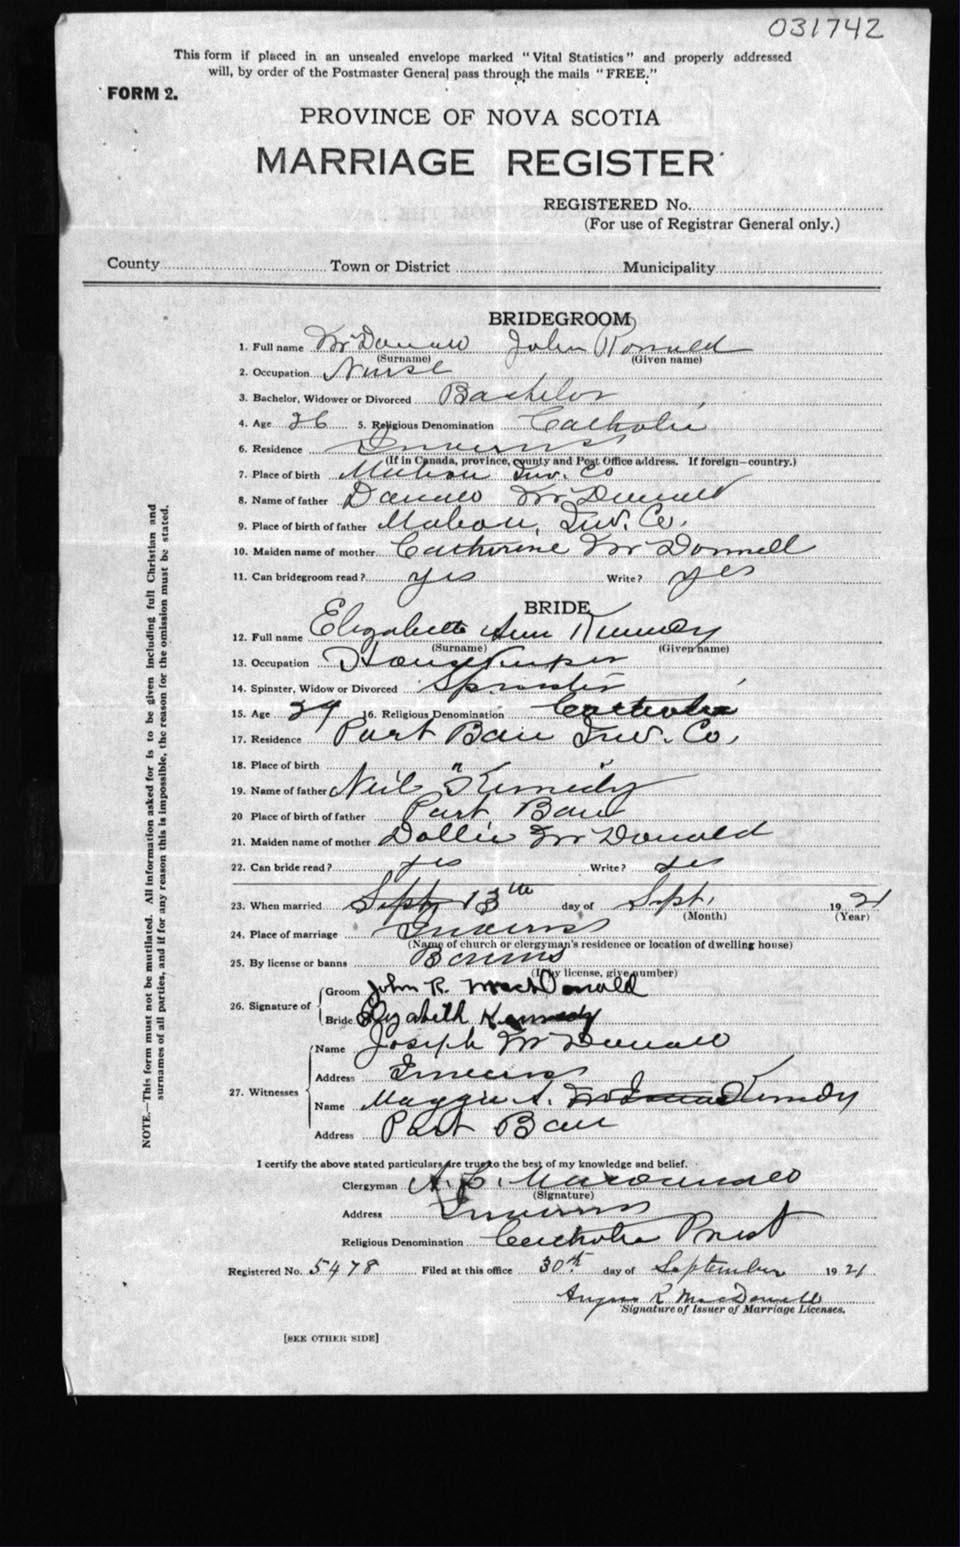 031742
This form if placed in an unsealed envelope marked "Vital Statistics" and properly addressed
will, by order of the Postmaster General pass through the mails "FREE."
FORM 2.
PROVINCE OF NOVA SCOTIA
MARRIAGE REGISTER
REGISTERED No.
(For use of Registrar General only.)
County Town or District Municipality
BRIDEGROOM
1. Full name McDonald John Ronald
(Surname) (Given name)
2. Occupation Nurse
3. Bachelor, Widower or Divorced Bachelor
4. Age 26 5. Religious Denomination Catholic
6. Residence Inverness
(If in Canada, province, county and Post Office address. If foreign—country.)
7. Place of birth Mabou Inv. Co
8. Name of father Donald McDonald
9. Place of birth of father Mabou, Inv. Co.
10. Maiden name of mother Catherine McDonnell
11. Can bridegroom read? yes Write? yes
BRIDE
12. Full name Elizabeth Ann Kennedy
(Surname) (Given name)
13. Occupation Housekeeper
14. Spinster, Widow or Divorced Spinster
15. Age 29 16. Religious Denomination Catholic
17. Residence Port Ban Inv. Co.
18. Place of birth " "
19. Name of father Neil Kennedy
20 Place of birth of father Port Ban
21. Maiden name of mother Dollie McDonald
22. Can bride read? yes Write? yes
23. When married Sept 13th day of Sept. 1921
(Month) (Year)
24. Place of marriage Inverness
(Name of church or clergyman's residence or location of dwelling house)
25. By license or banns Banns
(If by license, give number)
26. Signature of Groom John R. MacDonald
Bride Elizabeth Kennedy
27. Witnesses Name Joseph McDonald
Address Inverness
Name Maggie A. Kennedy
Address Port Ban
I certify the above stated particulars are true to the best of my knowledge and belief.
Clergyman A. L. Macdonald
(Signature)
Address Inverness
Religious Denomination Catholic Priest
Registered No. 5478 Filed at this office 30th day of September 1921
Angus R MacDonald
Signature of Issuer of Marriage Licenses.
[SEE OTHER SIDE]
NOTE.—This form must not be mutilated. All information asked for is to be given including full Christian and
surnames of all parties, and if for any reason this is impossible, the reason for the omission must be stated.